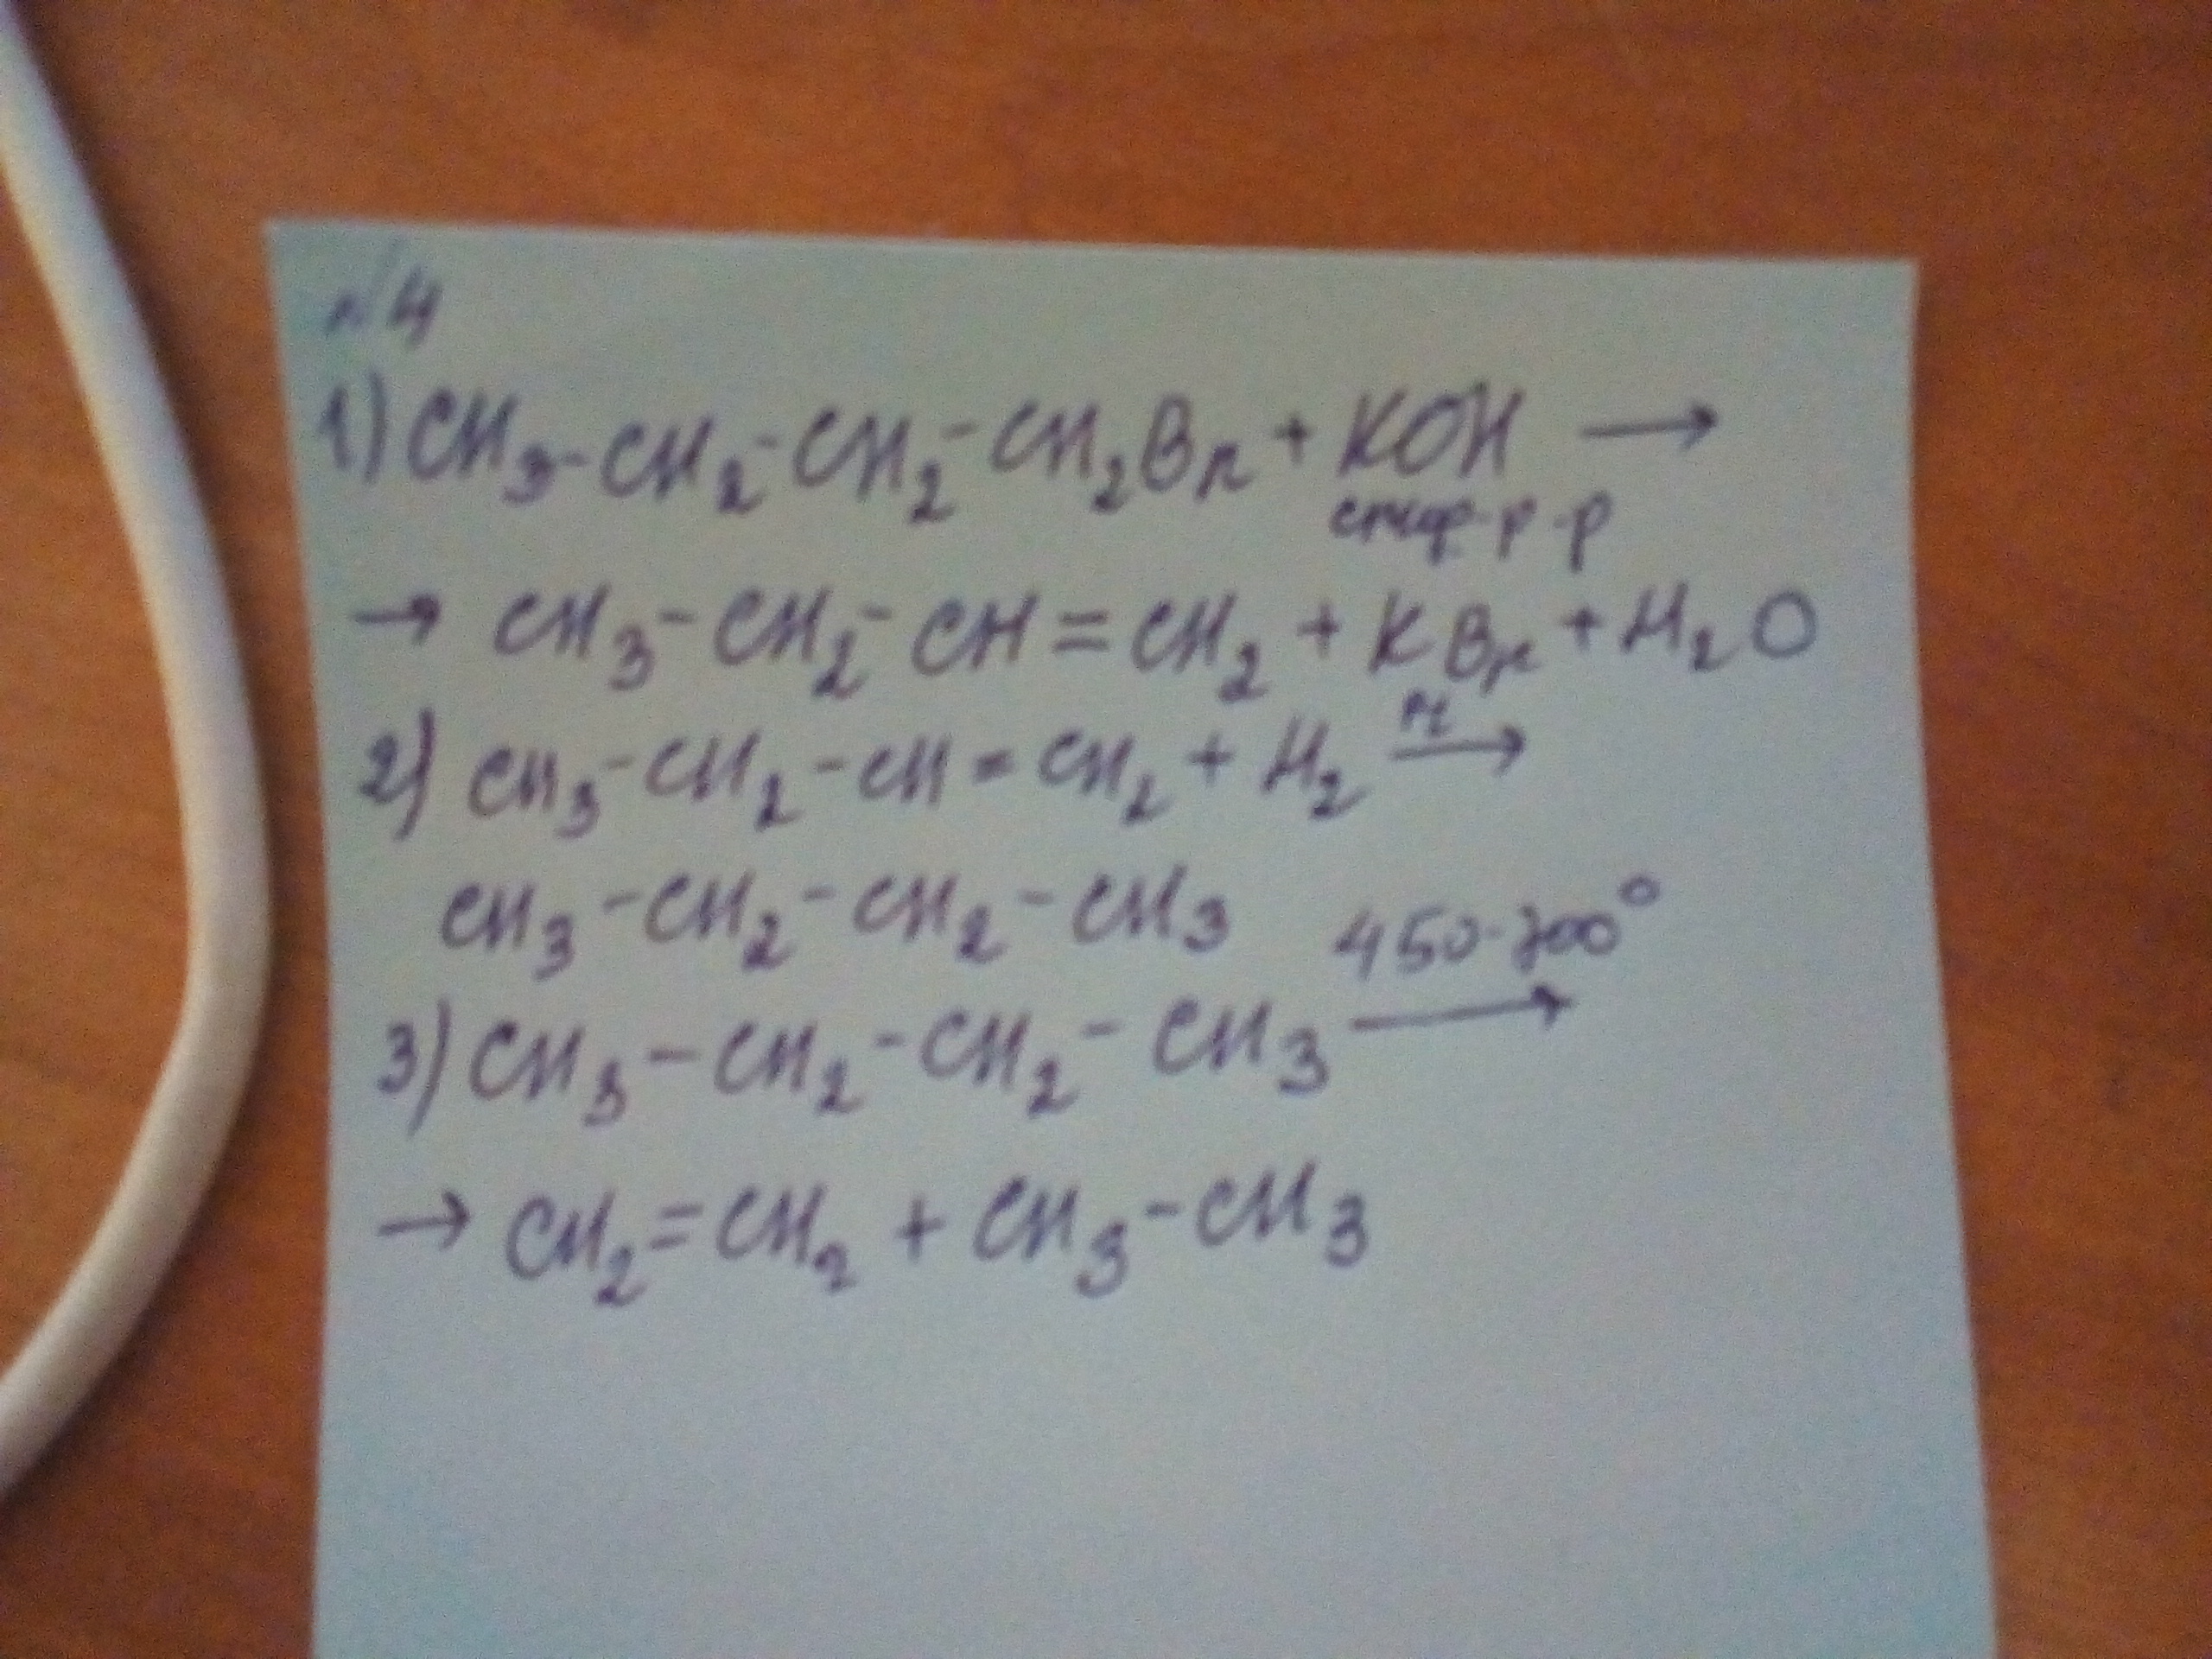 №4
1) CH₃-CH₂-CH₂-CH₂Br + KOH →
спирт. р-р
→ CH₃-CH₂-CH=CH₂ + KBr + H₂O
2) CH₃-CH₂-CH=CH₂ + H₂ →
CH₃-CH₂-CH₂-CH₃
450-700°
3) CH₃-CH₂-CH₂-CH₃ →
→ CH₂=CH₂ + CH₃-CH₃